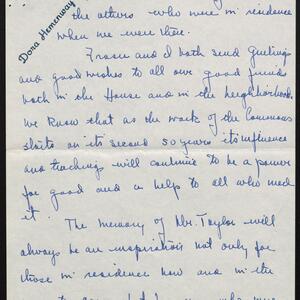 Dona Hemenway
the others who were in residence
when we were there.
and I both send greetings
and good wishes to all our good friends
both in the House and in the neighborhood.
We know that as the work of the Commons
starts on its second 50 years its influence
and teaching will continue to be a power
for good and a help to all who need
it.
The memory of Mr. Taylor will
always be an inspiration not only for
those in residence now and in the